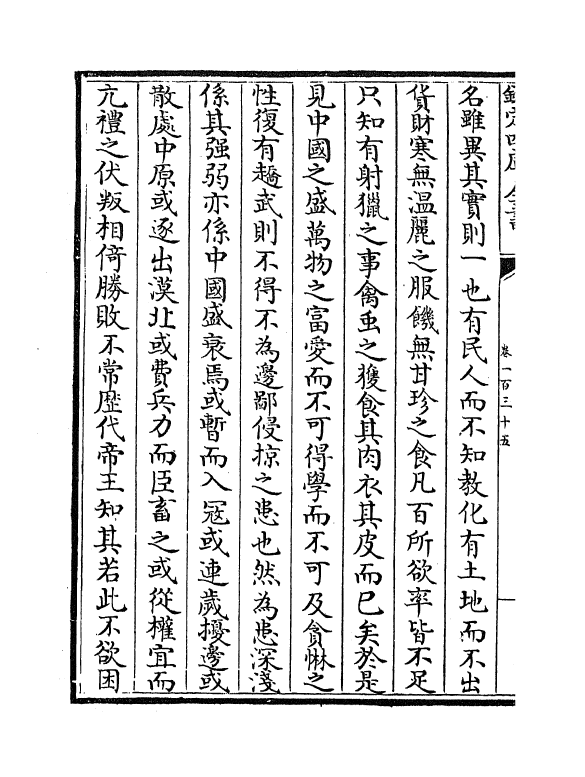 欽定四庫全書
卷一百三十五
名雖異其實則一也有民人而不知教化有土地而不出
貨財寒無温麗之服饑無甘珍之食凡百所欲率皆不足
只知有射獵之事禽䖝之獲食其肉衣其皮而已矣於是
見中國之盛萬物之富愛而不可得學而不可及貪惏之
性復有趫武則不得不為邊鄙侵掠之患也然為患深淺
係其强弱亦係中國盛衰焉或暫而入冦或連歲擾邊或
散處中原或逐出漠北或費兵力而臣畜之或從權宜而
亢禮之伏叛相倚勝敗不常歴代帝王知其若此不欲困